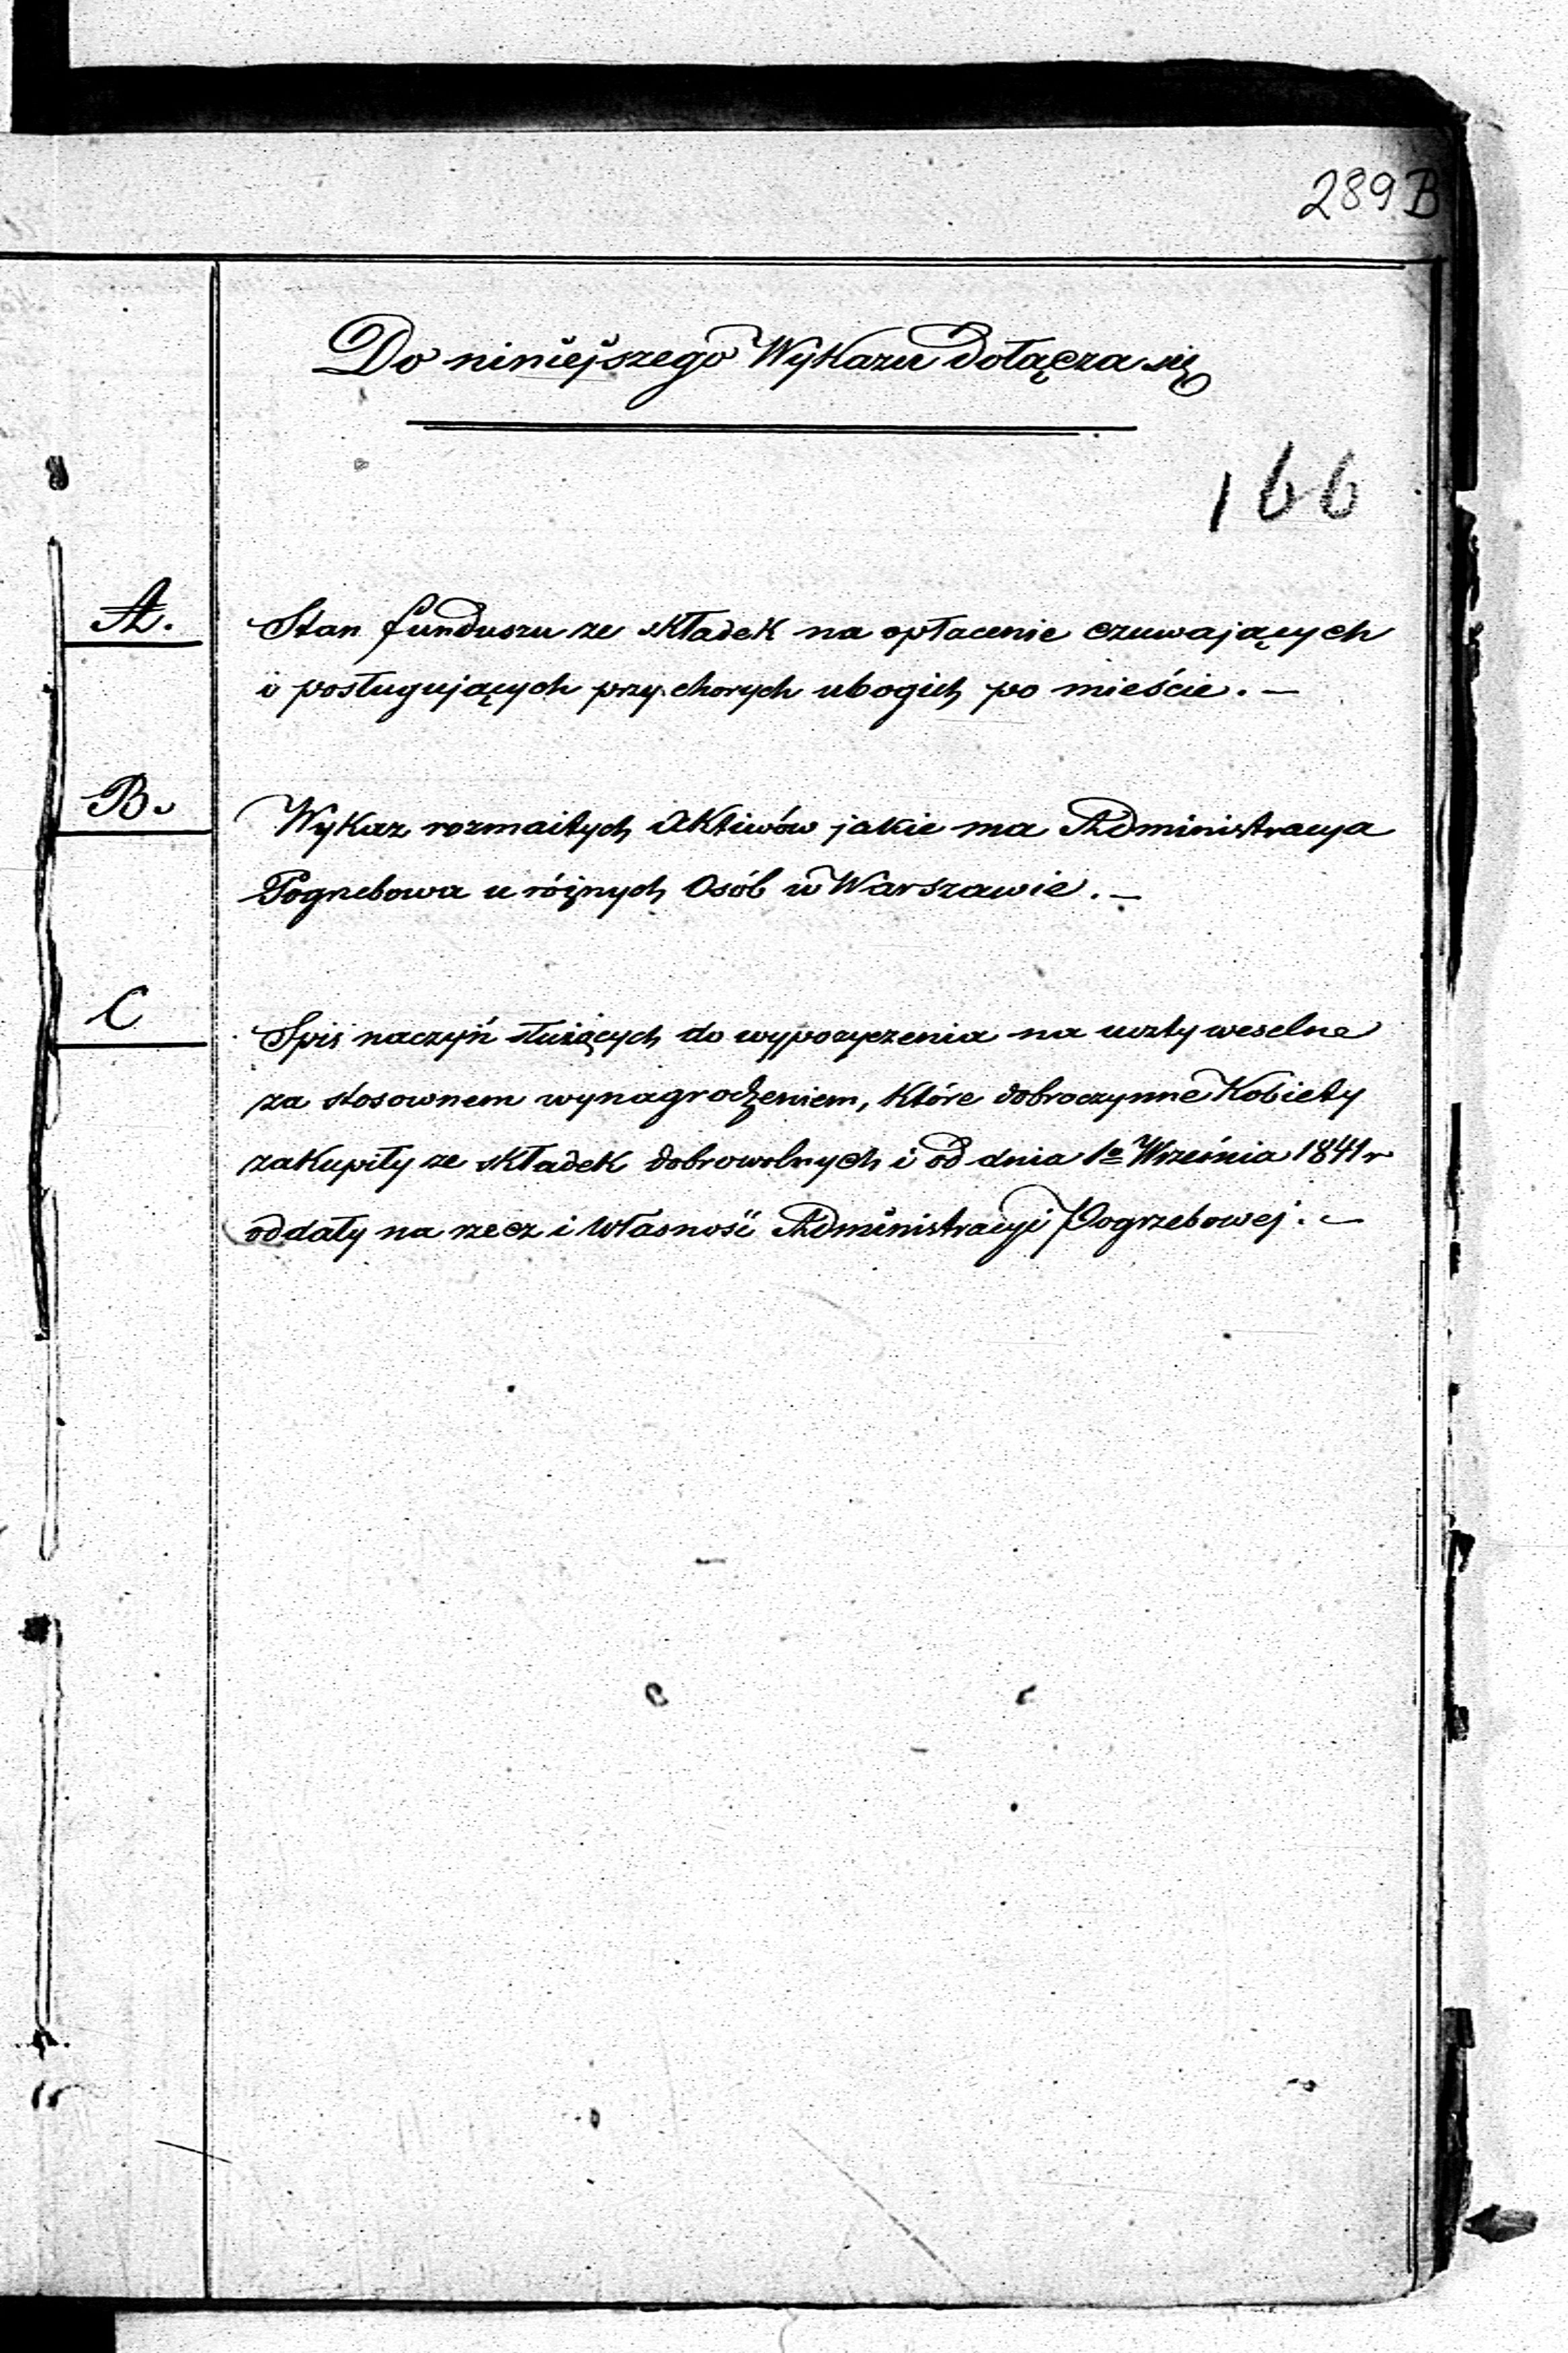 289 B
Do niniejszego Wykazu dołącza się
166
A.
Stan funduszu ze składek na opłacenie czuwających
i posługujących przy chorych ubogich po mieście. —
B.
Wykaz rozmaitych Aktiwów jakie ma Administracya
Pogrzebowa u różnych Osób w Warszawie. —
C
Spis naczyń służących do wypożyczenia na uczty weselne
za stosownem wynagrodzeniem, które dobroczynne Kobiety
zakupiły ze składek dobrowolnych i od dnia 1o Września 1841 r
oddały na rzecz i własność Administracyi Pogrzebowej. —